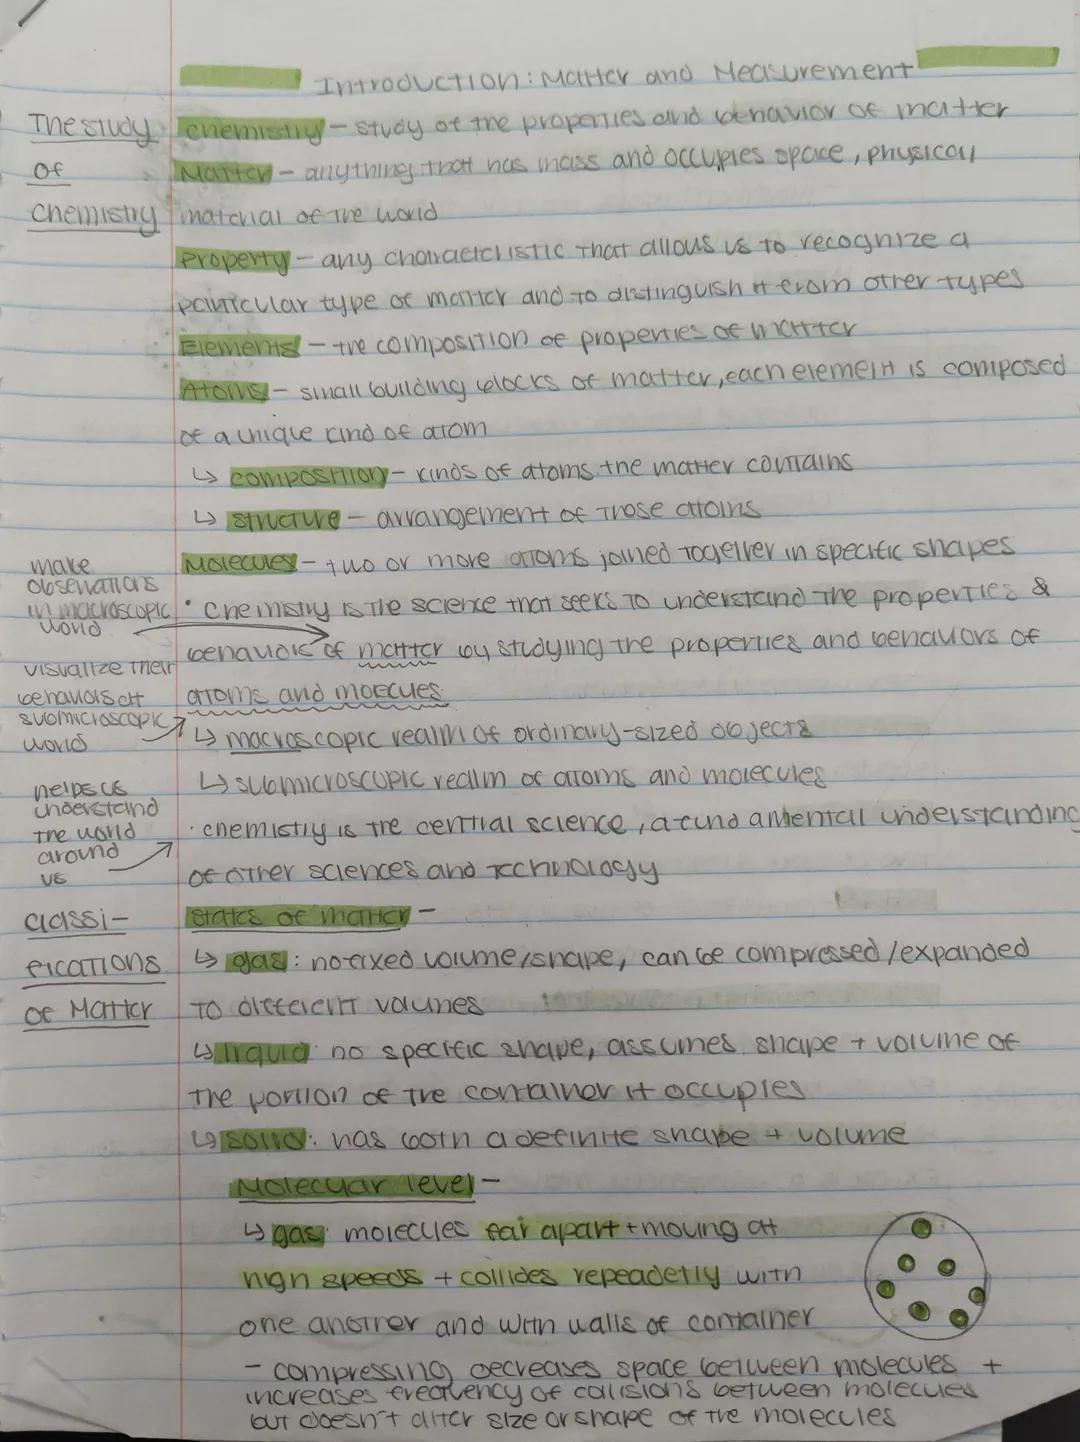 Introduction: Matter and Measurement
The study
of
Chemistry
chemistry - study of the properties and behavior of matter
Matter - anything that has mass and occupies space, physical
material of the world
Property - any characteristic that allows us to recognize a
particular type of matter and to distinguish it from other types
Elements - the composition of properties of matter
Atoms - small building blocks of matter, each element is composed
of a unique kind of atom
↳ composition - kinds of atoms the matter contains
↳ structure - arrangement of those atoms
Molecules - two or more atoms joined together in specific shapes
make
observations
in macroscopic
world
• Chemistry is the science that seeks to understand the properties &
behaviors of matter by studying the properties and behaviors of
atoms and moecules
visualize their
behaviors at
submicroscopic
world
↳ macroscopic realm of ordinary-sized objects
↳ submicroscopic realm of atoms and molecules
helps us
understand
the world
around
us
· chemistry is the central science, a fundamental understanding
of other sciences and technology
classi-
fications
of Matter
states of matter -
↳ gas: no fixed volume/shape, can be compressed/expanded
to different volumes
↳ liquid: no specific shape, assumes shape + volume of
the portion of the container it occupies
↳ solid: has both a definite shape + volume
Molecular level -
↳ gas: molecules far apart + moving at
high speeds + collides repeadetly with
one another and with walls of container
- compressing decreases space between molecules +
increases frequency of collisions between molecules
but doesn't alter size or shape of the molecules